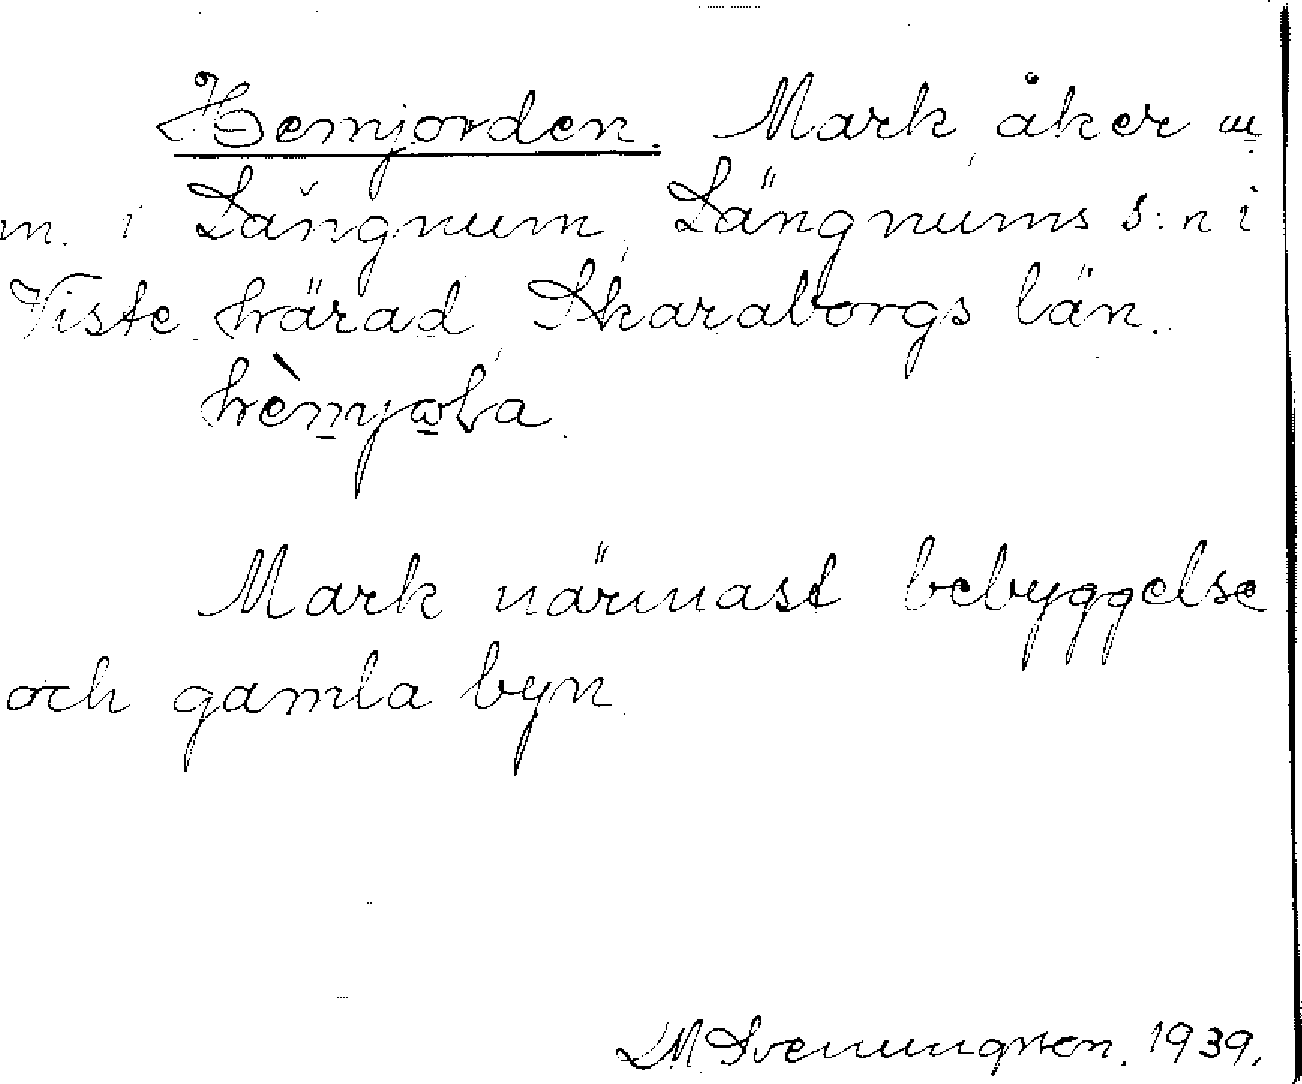 Hemjorden. Mark, åker m
m. i Längnum, Längnums s:n i
Viste härad, Skaraborgs län.
Mark närmast bebyggelse
och gamla byn.
1939.